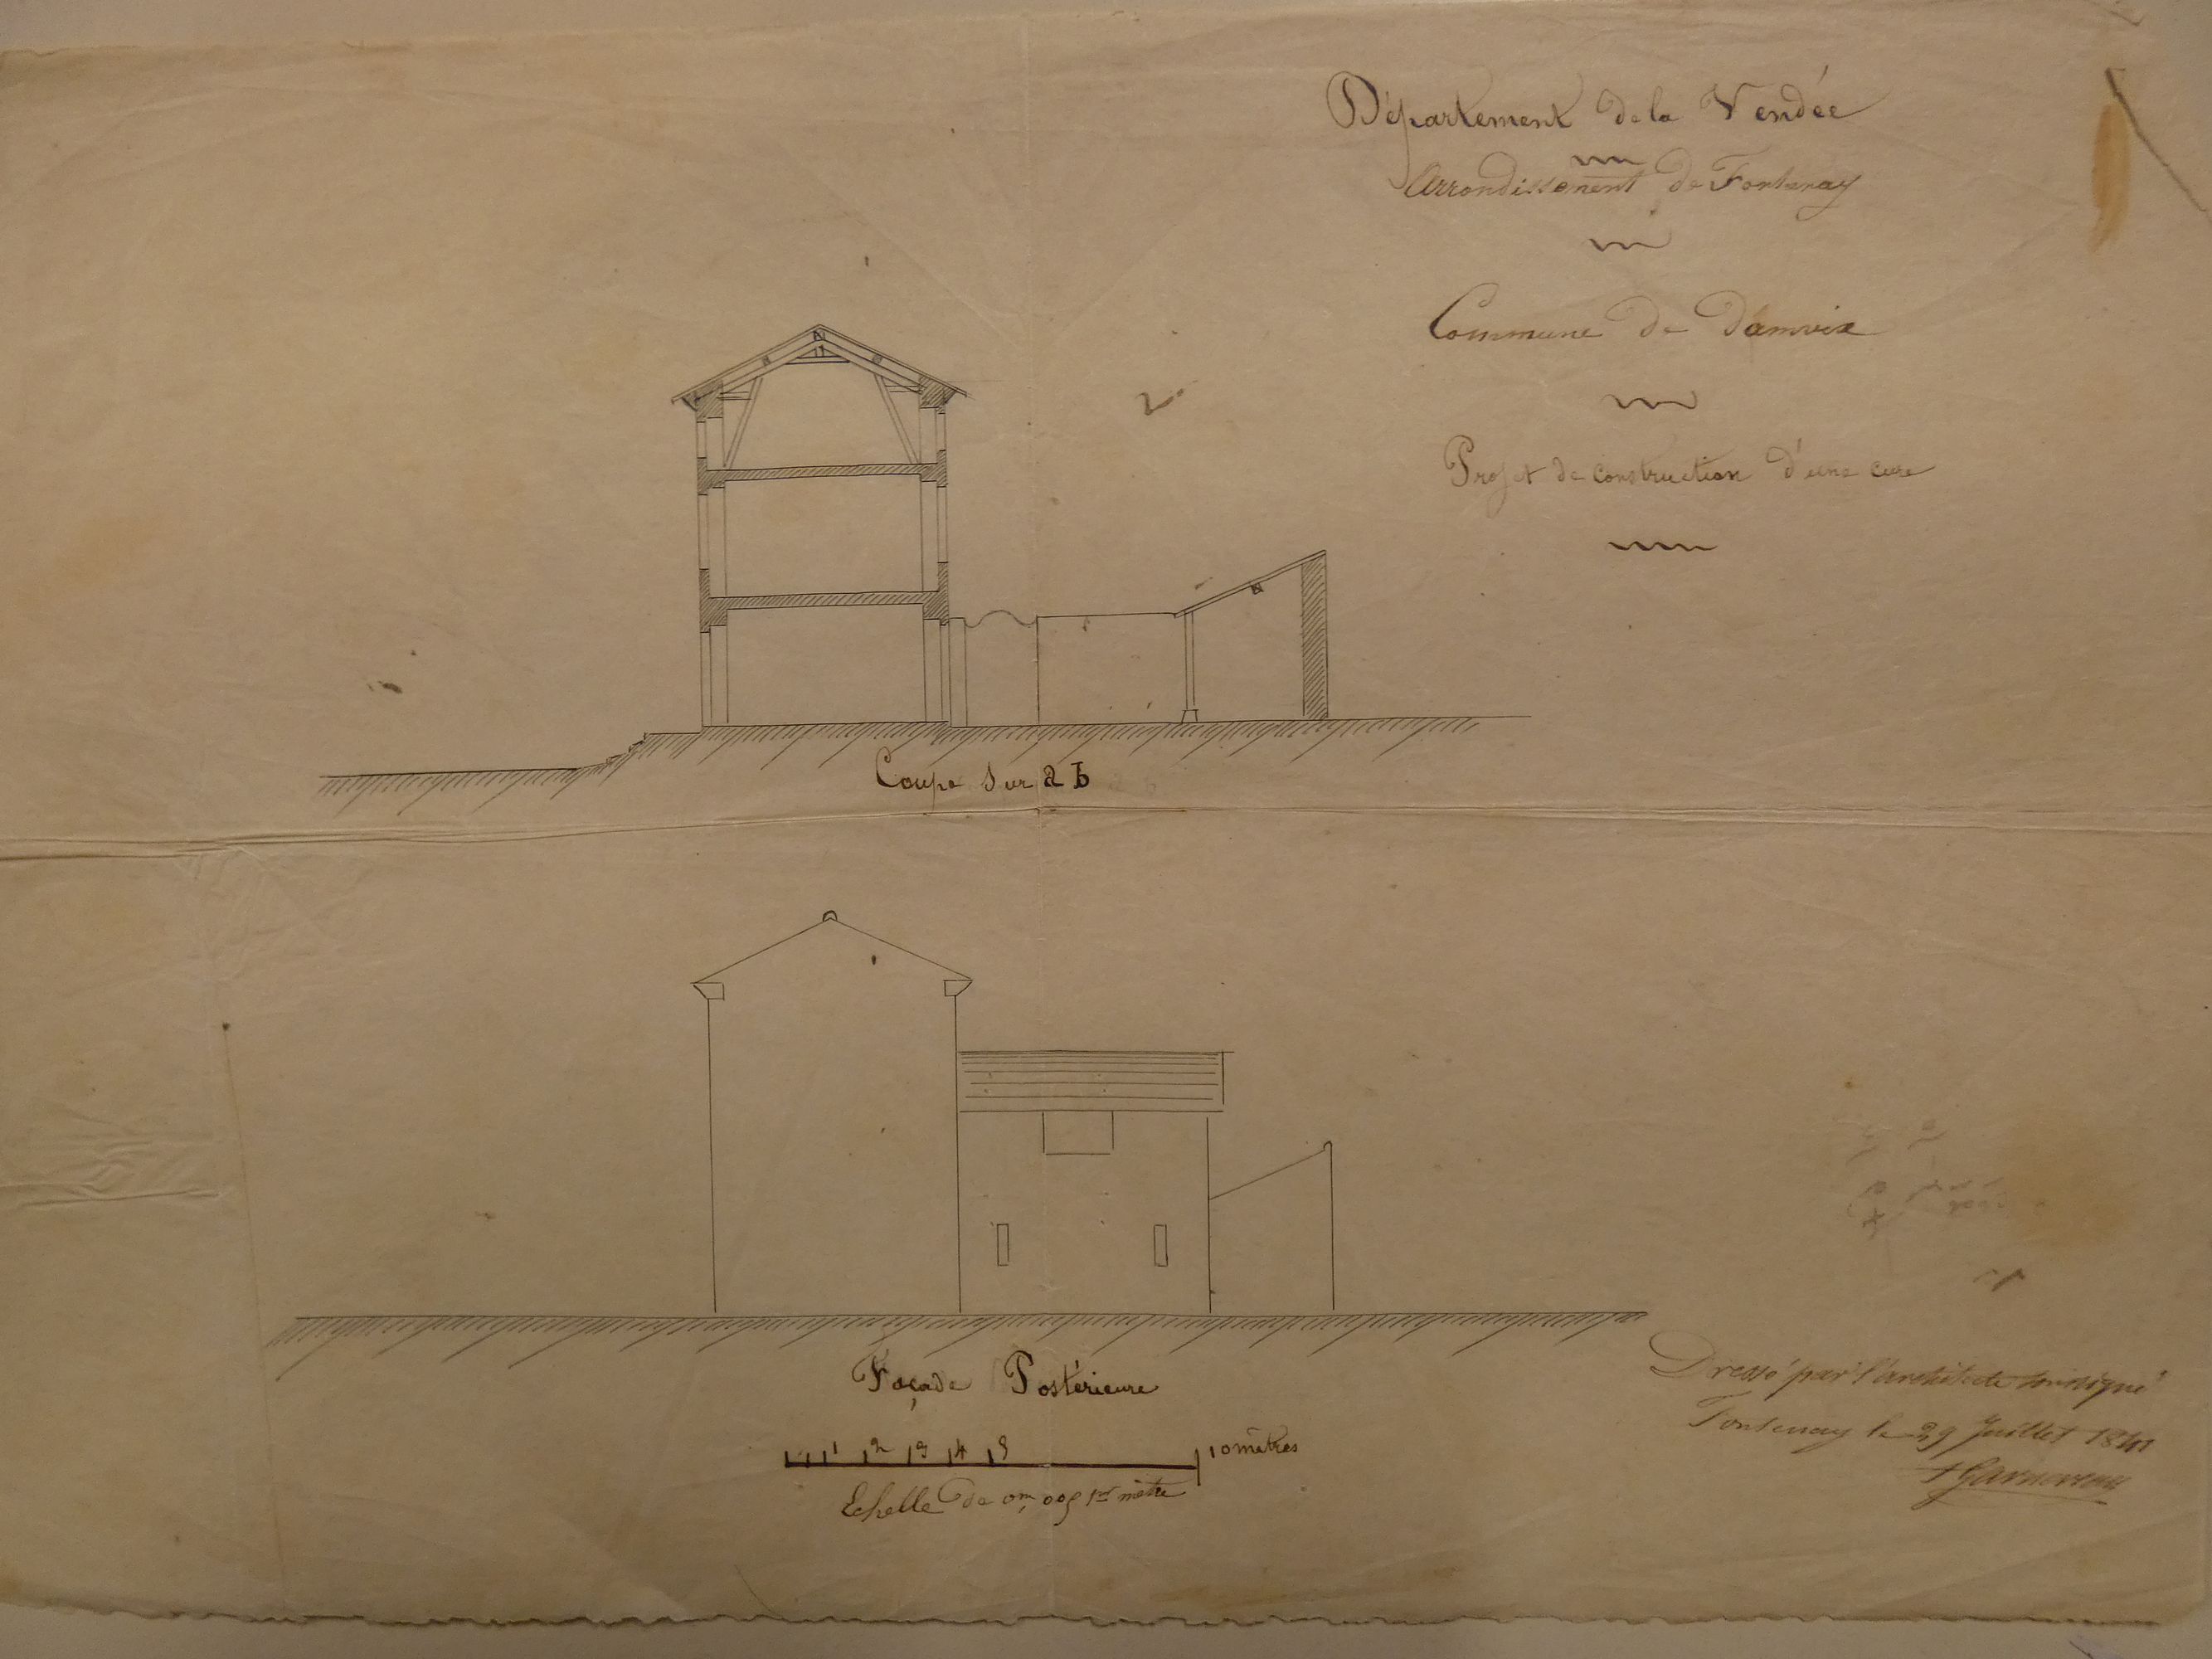 Département de la Vendée
Arrondissement de Fontenay
Commune de Damvix
Projet de construction d'une cure
Coupe sur a b
Façade Postérieure
1 2 3 4 5 10 mètres
Echelle de 0m,005 pr mètre
Dressé par l'architecte soussigné
Fontenay le 29 Juillet 1841